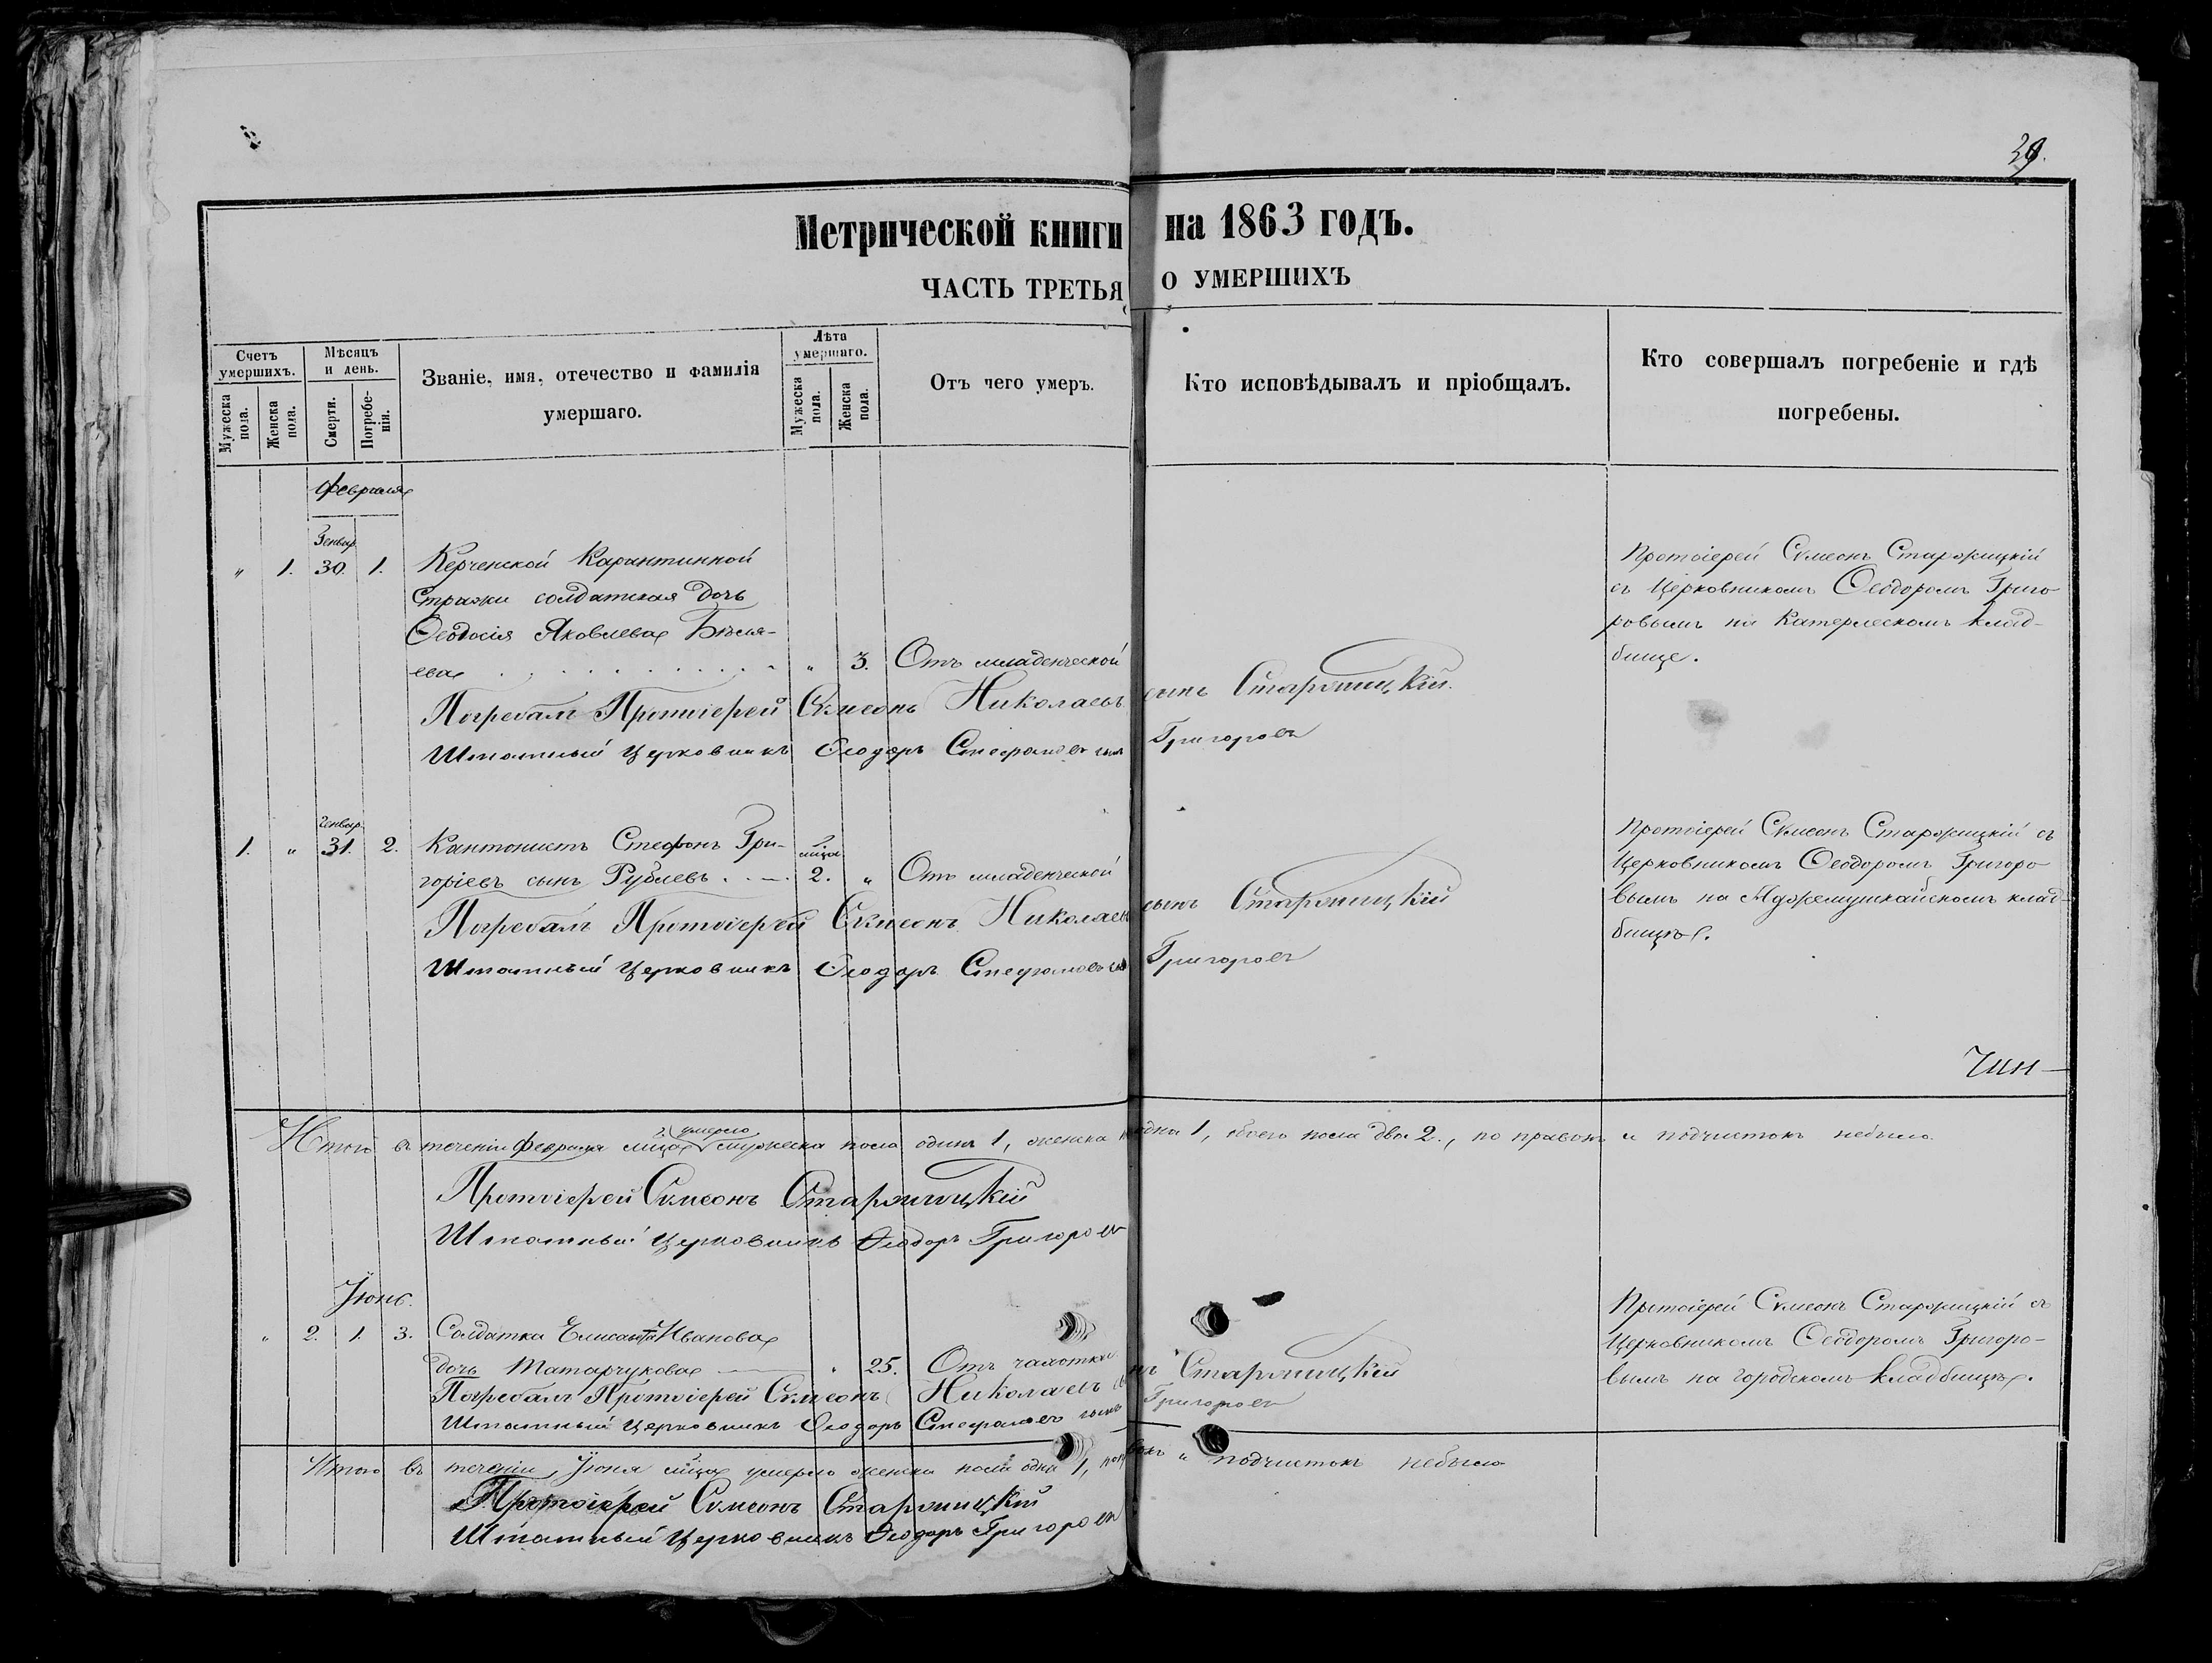 39.
Метрической книги на 1863 годъ.
ЧАСТЬ ТРЕТЬЯ О УМЕРШИХЪ
Счетъ умершихъ.
Мужеска пола.
Женска пола.
Мѣсяцъ и день.
Смерти.
Погребенія.
Званіе, имя, отечество и фамилія
умершаго.
Лѣта умершаго.
Мужеска пола.
Женска пола.
Отъ чего умеръ.
Кто исповѣдывалъ и пріобщалъ.
Кто совершалъ погребеніе и гдѣ
погребены.
Февраля
Генвар.
„ 1. 30. 1. Керченской Карантинной
Стражи солдатская дочь
Ѳеодосія Яковлева Бѣля-
ева „ 3. Отъ младенческой
Протоіерей Сѵмеонъ Старожицкій
съ Церковникомъ Ѳеодоромъ Григо
ровымъ на Катерлескомъ клад-
бище.
Погребалъ Протоіерей Сѵмеонъ Николаевъ сынъ Старожицкій.
Штатный Церковникъ Ѳеодоръ Стефановъ сынъ Григоровъ
Генвар.
1. „ 31. 2. Кантонистъ Стефанъ Гри-
горіевъ сынъ Рублевъ мѣца 2. „ Отъ младенческой
Протоіерей Сѵмеонъ Старожицкій съ
Церковникомъ Ѳеодоромъ Григоро
вымъ на Аджемушкайскомъ клад-
бищѣ.
Погребалъ Протоіерей Сѵмеонъ Николаевъ сынъ Старожицкій
Штатный Церковникъ Ѳеодоръ Стефановъ сынъ Григоровъ
Чин-
Итого въ теченіи февраля мѣца умерло мужеска пола одинъ 1, женска одна 1, обоего пола два 2., по правокъ и подчистокъ небыло.
Протоіерей Сѵмеонъ Старожицкій
Штатный Церковникъ Ѳеодоръ Григоровъ
Іюнь.
„ 2. 1. 3. Солдатка Елисавета Иванова
дочь Матарчукова „ 25. Отъ чахотки
Протоіерей Сѵмеонъ Старожицкій съ
Церковникомъ Ѳеодоромъ Григоро-
вымъ на городскомъ кладбищѣ.
Погребалъ Протоіерей Сѵмеонъ Николаевъ сынъ Старожицкій
Штатный Церковникъ Ѳеодоръ Стефановъ сынъ Григоровъ
Итого въ теченіи Іюня мѣца умерло женска пола одна 1, поправокъ и подчистокъ небыло
Протоіерей Сѵмеонъ Старожицкій
Штатный Церковникъ Ѳеодоръ Григоровъ